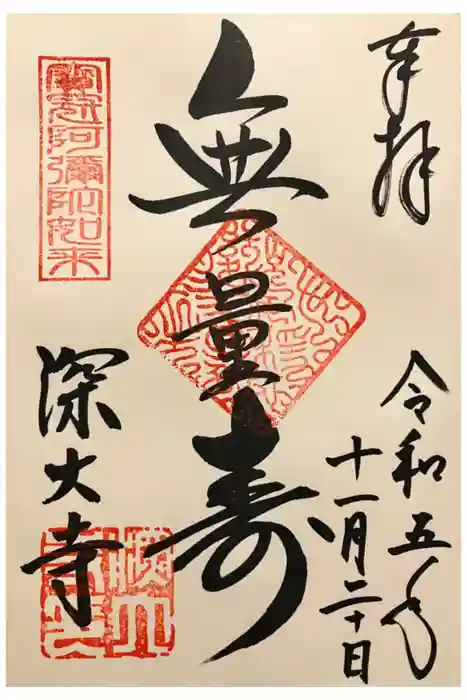 奉拝
令和五年
十一月二十日
無量寿
寶冠阿彌陀如来
深大寺